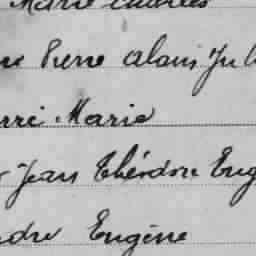 Marie Charles
Pierre Alois Jul
rre Marie
Jean Théodore Eug
dre Eugène